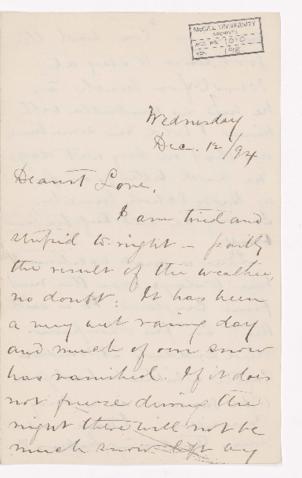 McGILL UNIVERSITY
ARCHIVES
ACC. NO. 1010
REF.
Wednesday
Dec. 12/94
Dearest Love,
I am tired and
stupid to-night - partly
the result of the weather,
no doubt. It has been
a very wet rainy day
and much of our snow
has vanished. If it does
not freeze during the
night there will not be
much snow left by